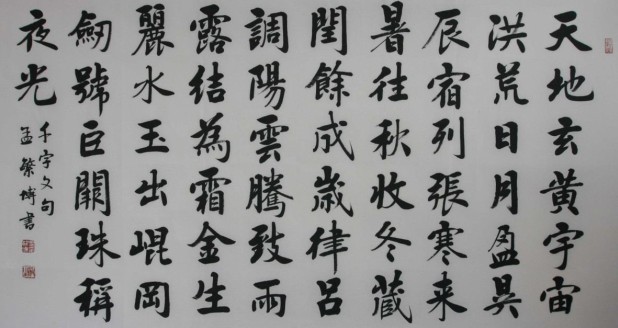 天地玄黄宇宙
洪荒日月盈昃
辰宿列張寒来
暑往秋收冬藏
閏餘成歲律呂
調陽雲騰致雨
露結為霜金生
麗水玉出崐岡
劒號巨闕珠稱
夜光
千字文句
孟繁書